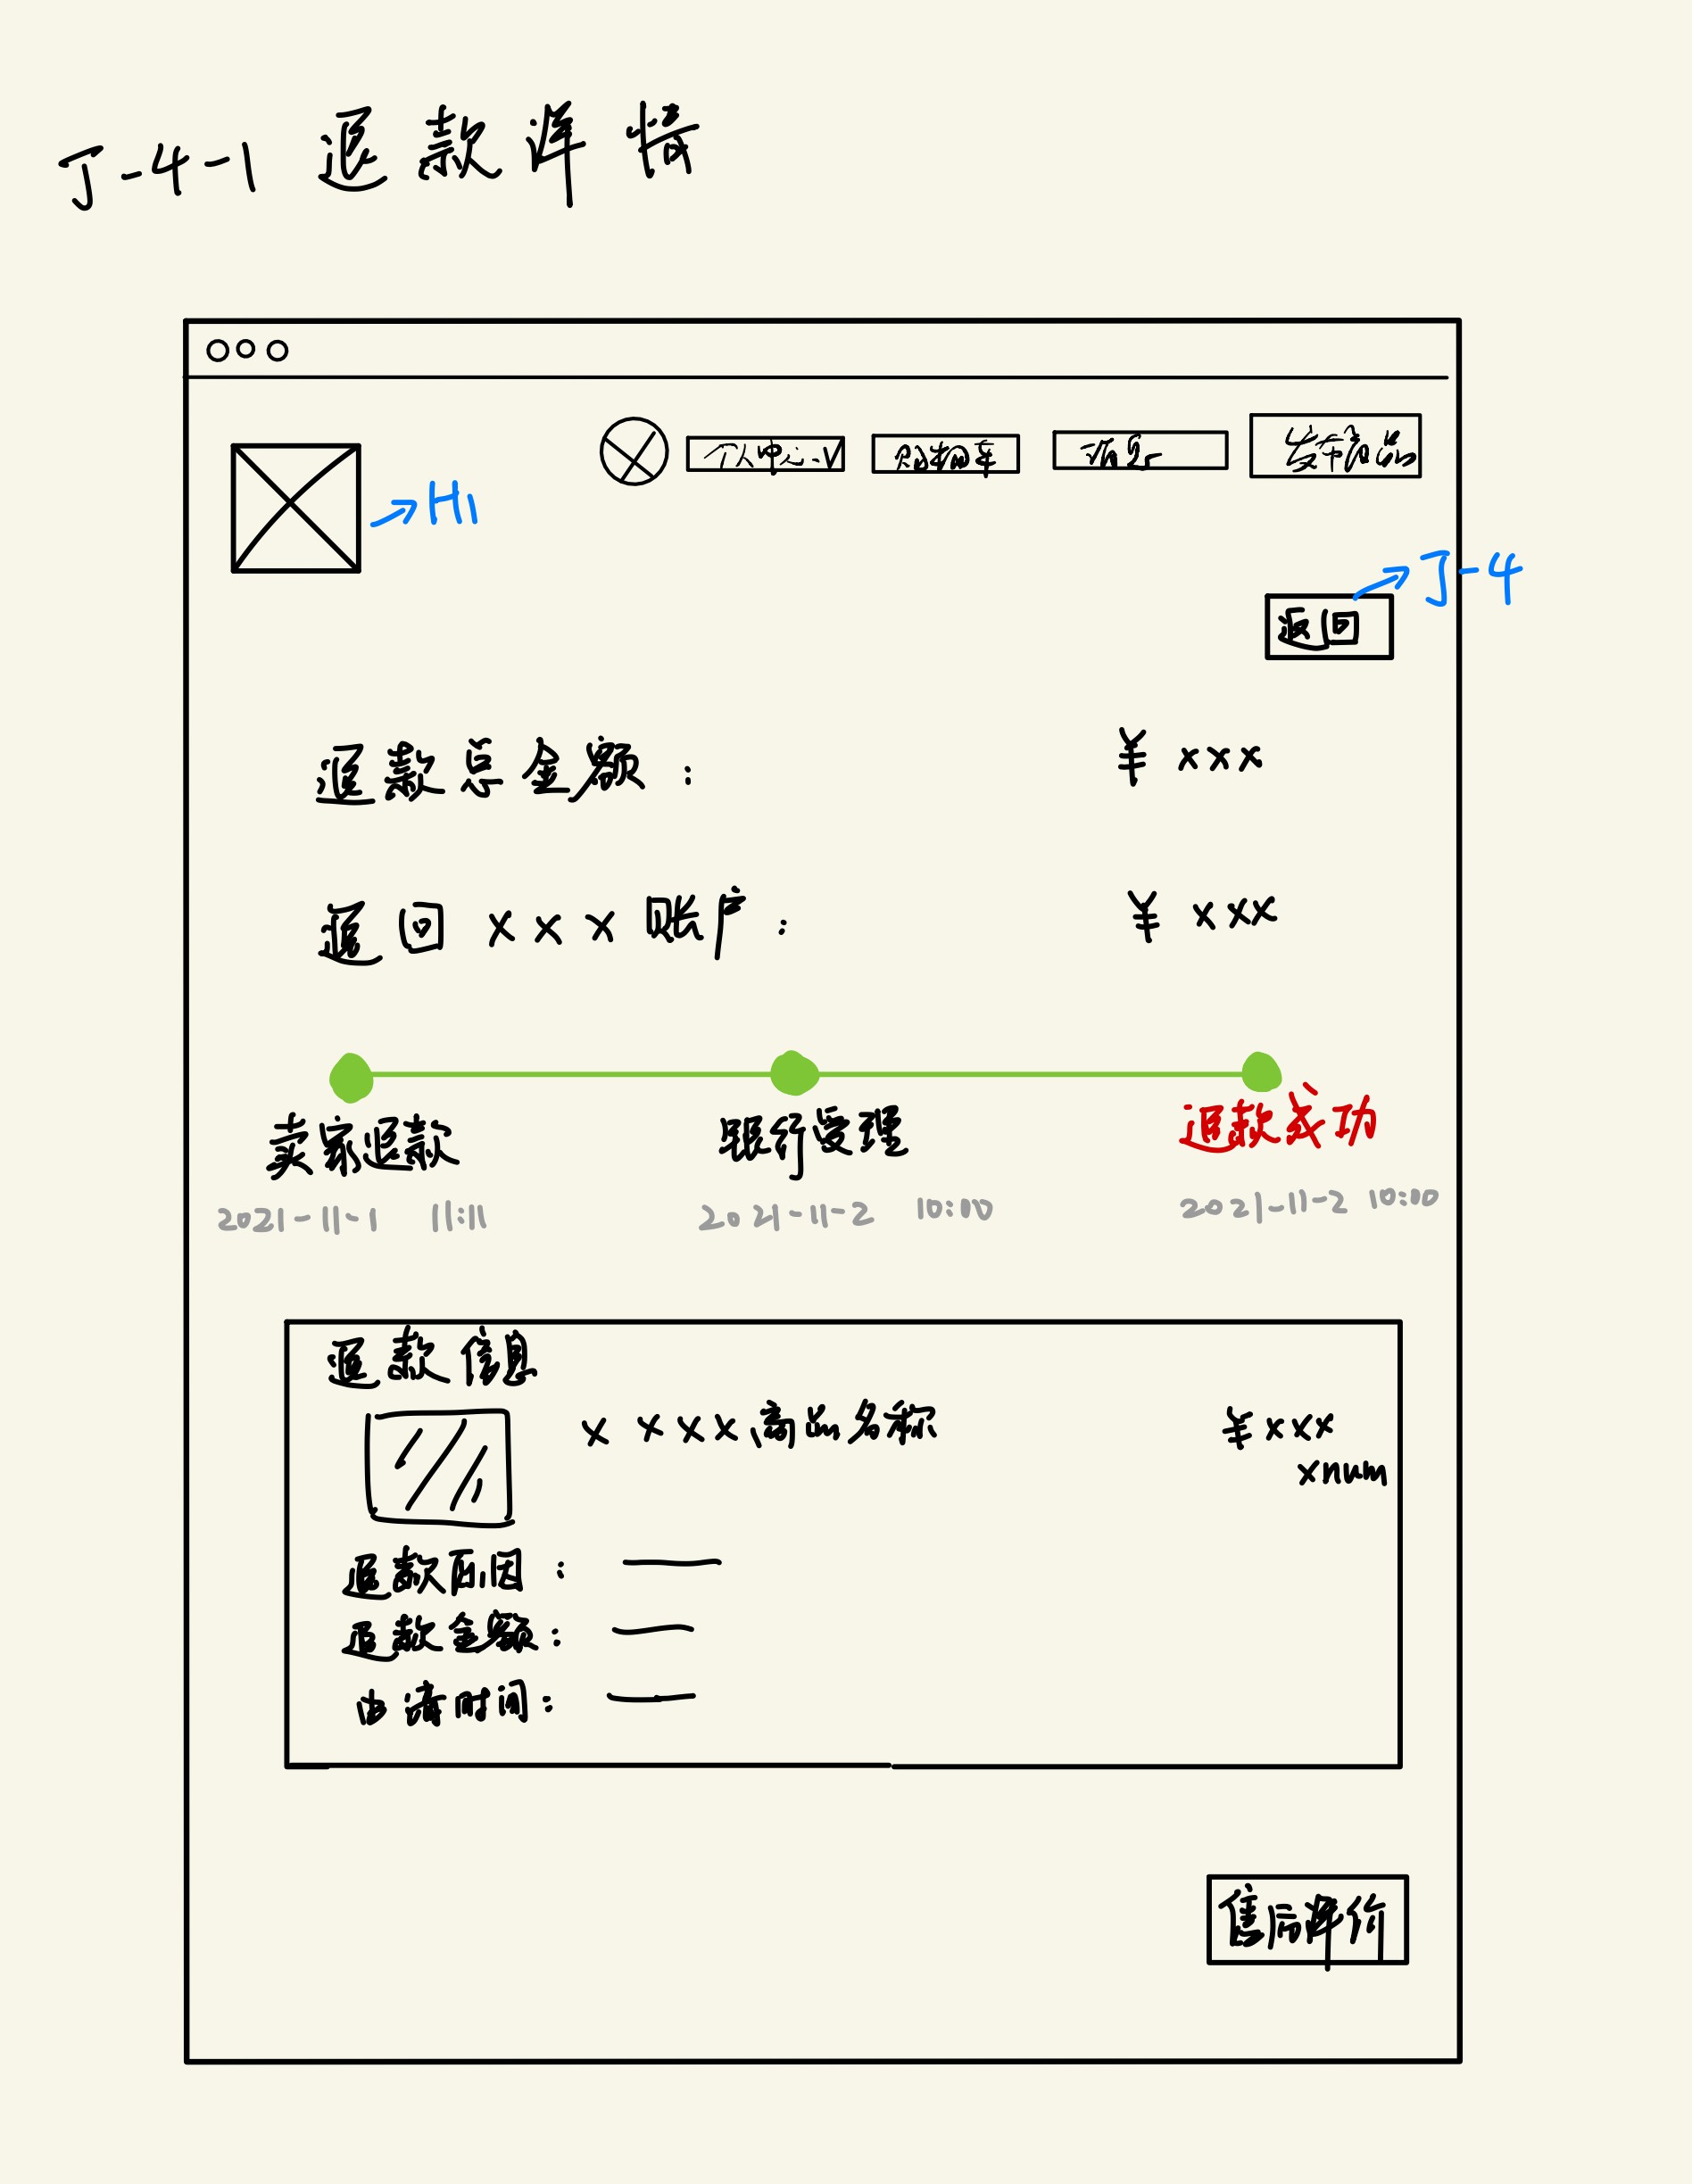 J-4-1 退款详情
个人中心 V 购物车 消息 发布商品
→H1
→J-4
返回
退款总金额： ¥ xxx
退回 x x x 账户： ¥ xxx
卖家退款 银行受理 退款成功
2021-11-1 11:11 2021-11-2 10:00 2021-11-2 10:00
退款信息
x xxx、商品名称 ¥xxx
xnum
退款原因：
退款金额：
申请时间：
售后评价